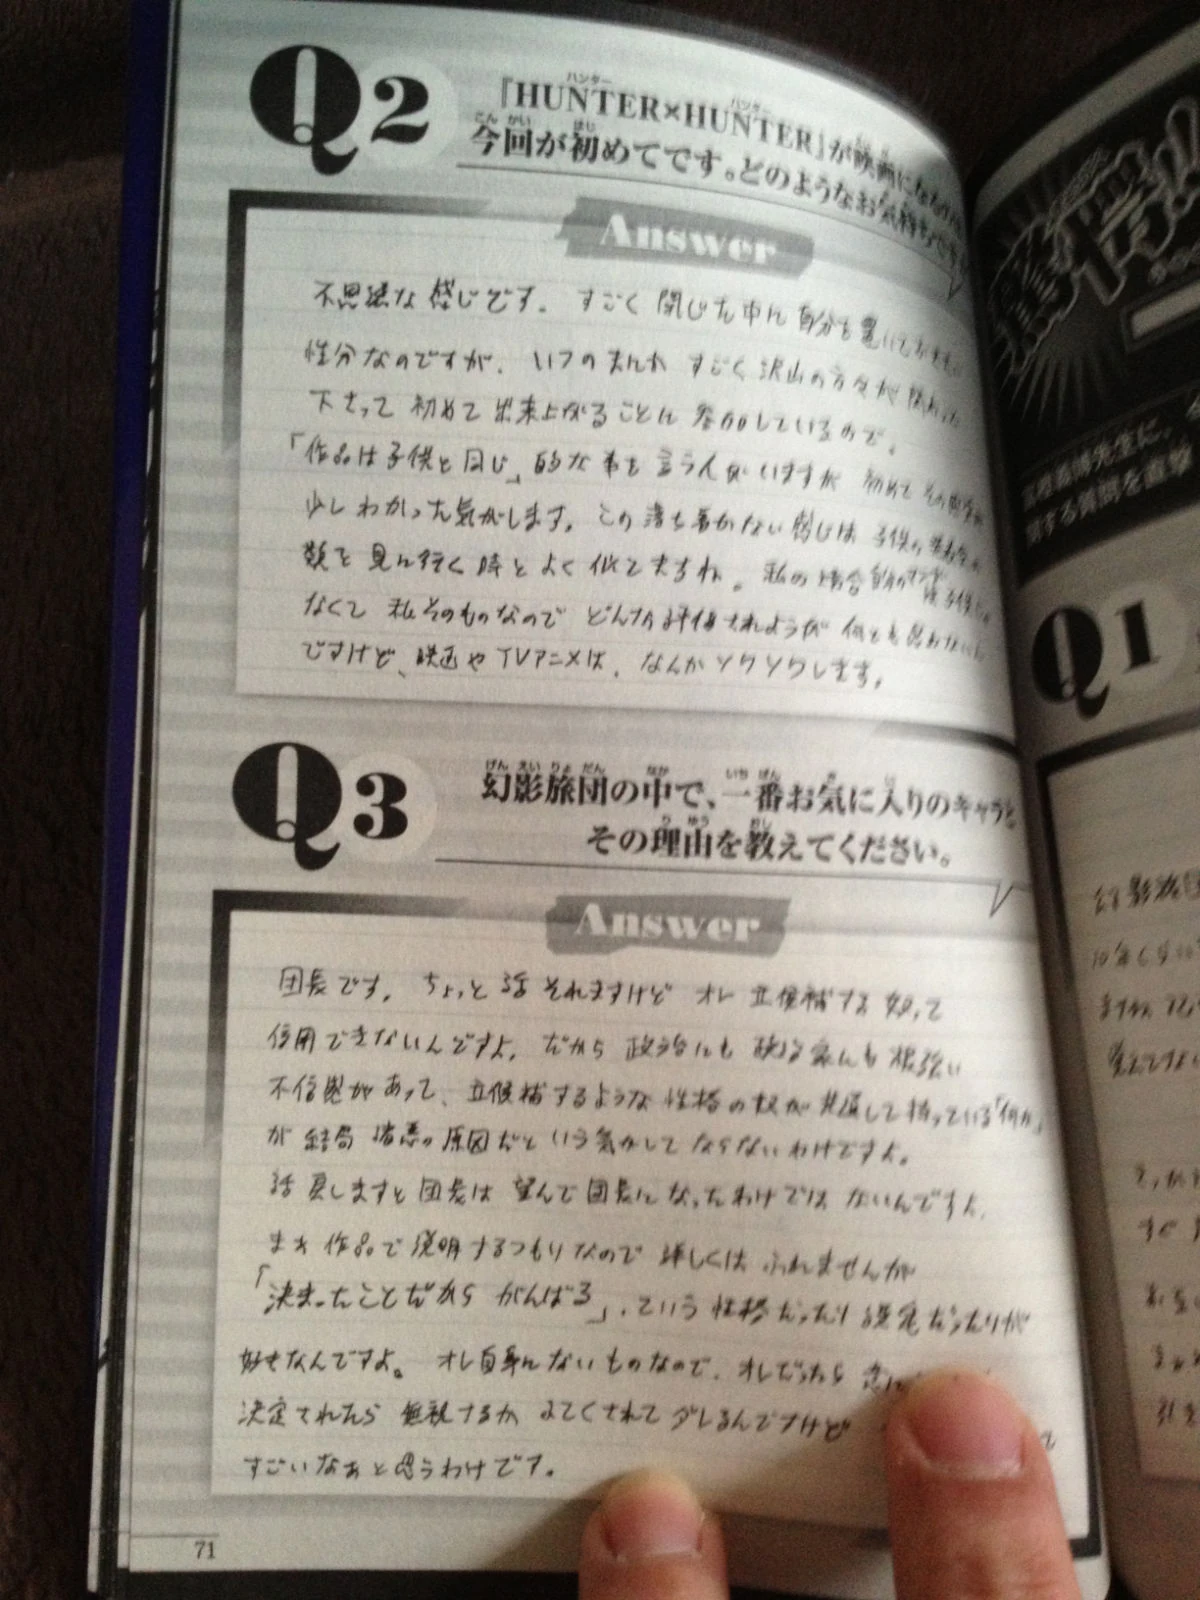 Q2
『HUNTER×HUNTER』が映画になるのは
今回が初めてです。どのようなお気持ちです
Answer
不思議な感じです。すごく閉じた中に自分を置いておきたい
性分なのですが、いつのまにか すごく沢山の方々が関わって
下さって 初めて出来上がることに参加しているので。
「作品は子供と同じ」的な事を言う人がいますが 初めてその
少しわかった気がします。この落ち着かない感じは 子供の
類を見に行く時とよく似てますね。私の場合自分の
なくて 私そのものなので どんな評価されようが 何とも思わない
ですけど、映画やTVアニメは、なんかソワソワします。
Q3
幻影旅団の中で、一番お気に入りのキャラと
その理由を教えてください。
Answer
団長です。ちょっと話それますけど オレ 立候補する奴って
信用できないんですよ。だから 政治にも 政治家にも 根強い
不信感があって、立候補するような性格の奴が共通して持っている「何か」
が 結局 諸悪の原因だという気がしてならないわけですよ。
話戻しますと団長は 望んで団長になったわけではないんですよ。
まぁ 作品で説明するつもりなので 詳しくは ふれませんが
「決まったことだから がんばる」、という 性格だったり 設定だったりが
好きなんですよ。オレ自身にないものなので、オレだったら
決定されたら 無視するか よてくされて ダレるんですけど
すごいなぁと思うわけです。
71
先生に、
する質問を直撃
Q1
幻影旅団